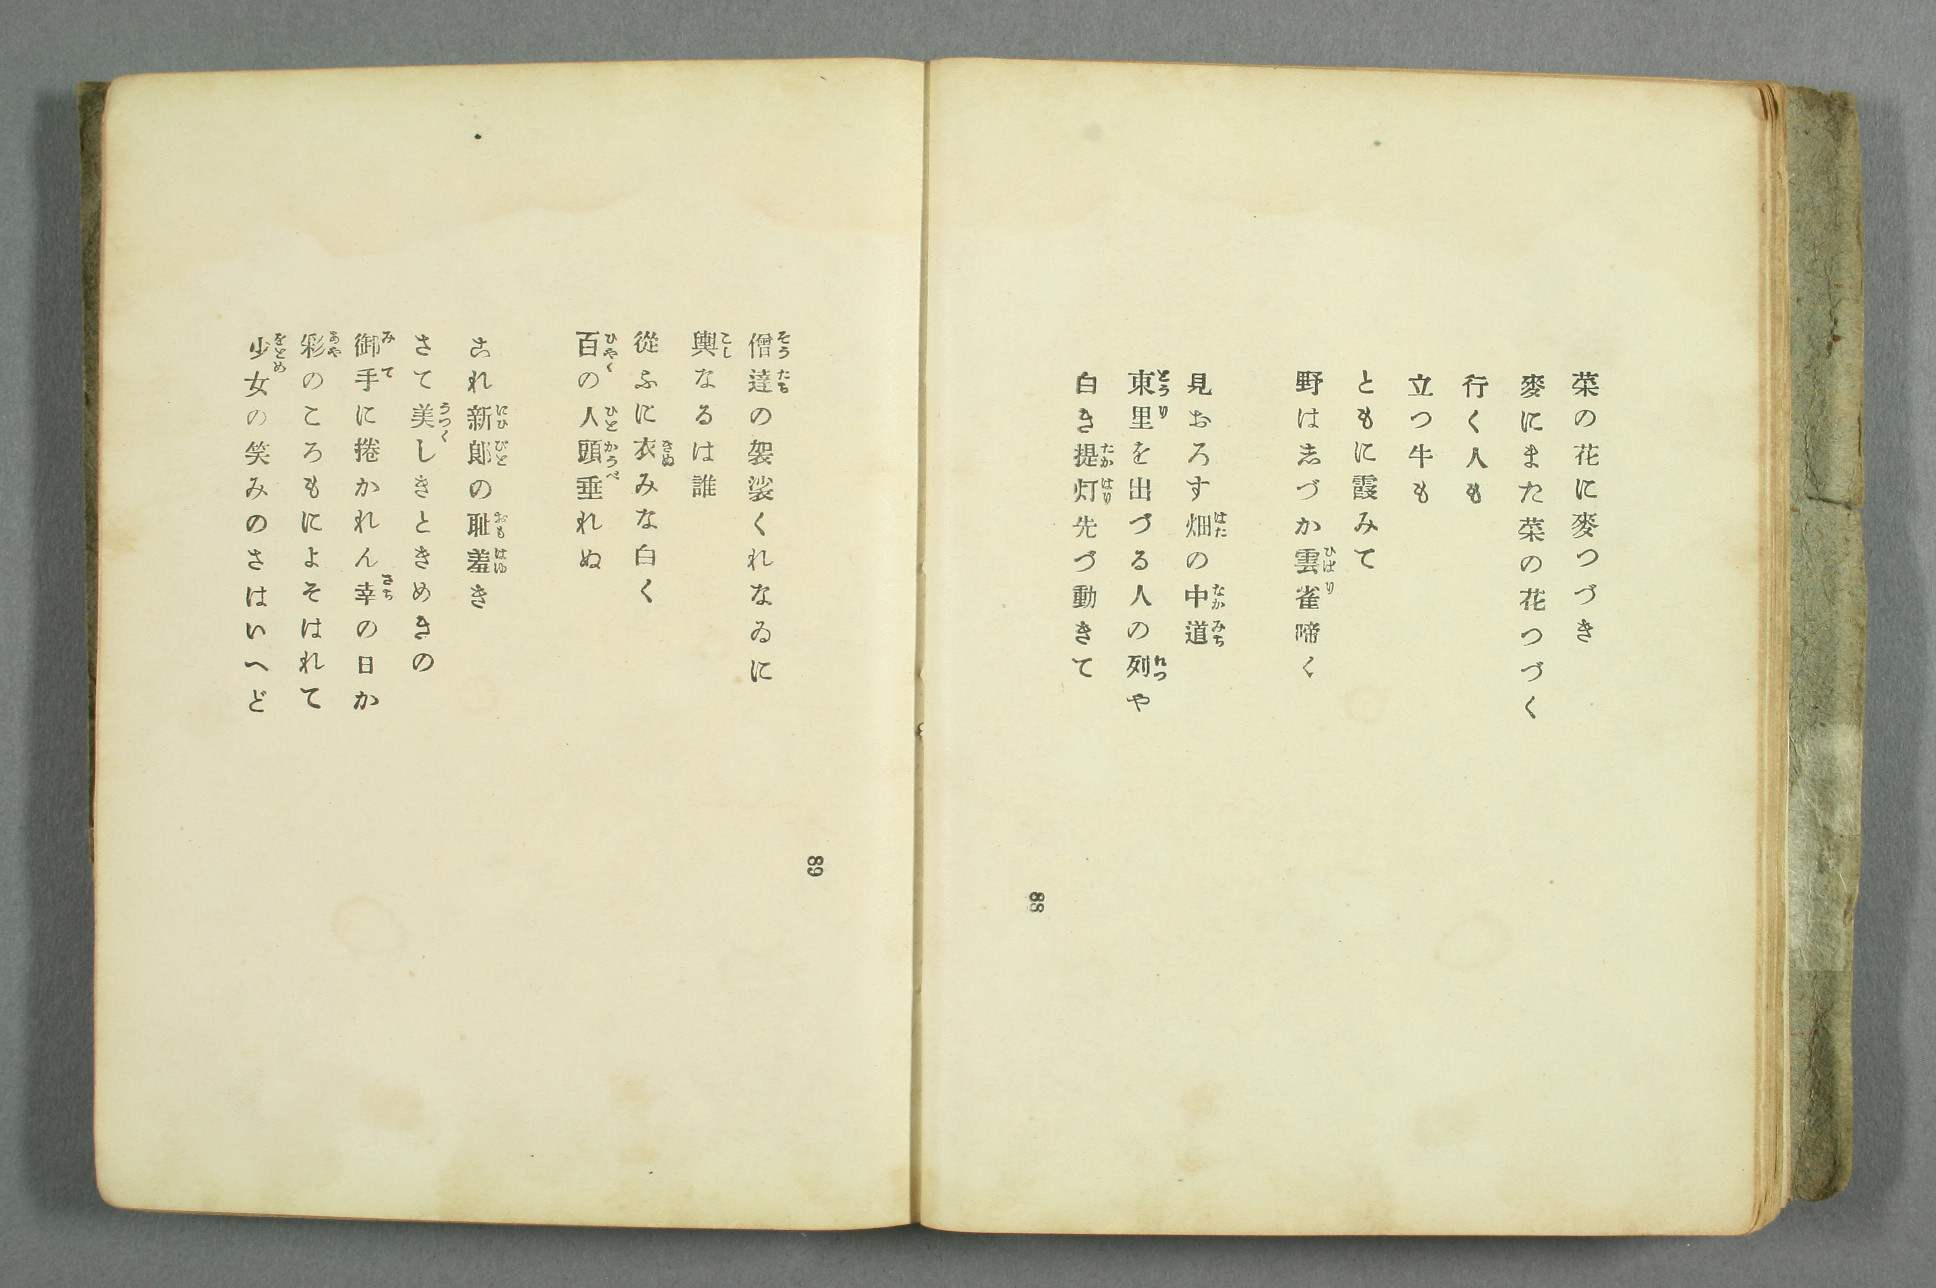 菜の花に麥つづき
麥にまた菜の花つづく
行く人も
立つ牛も
ともに霞みて
野は志づか雲雀啼く
見おろす畑の中道
東里を出づる人の列や
白き提灯先づ動きて
88
僧達の袈裟くれなゐに
輿なるは誰
從ふに衣みな白く
百の人頭垂れぬ
これ新郎の耻羞き
さて美しきときめきの
御手に捲かれん幸の日か
彩のころもによそはれて
少女の笑みのさはいへど
89